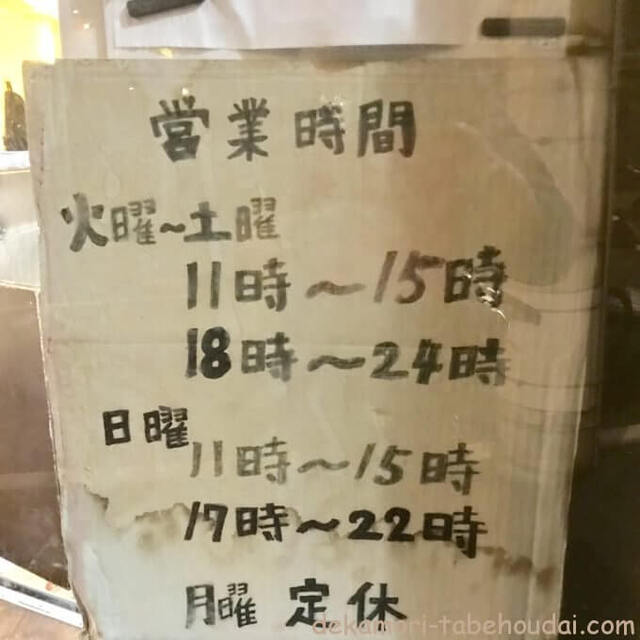 営業時間
火曜~土曜
11時~15時
18時~24時
日曜
11時~15時
17時~22時
月曜 定休
dekamori-tabehoudai.com